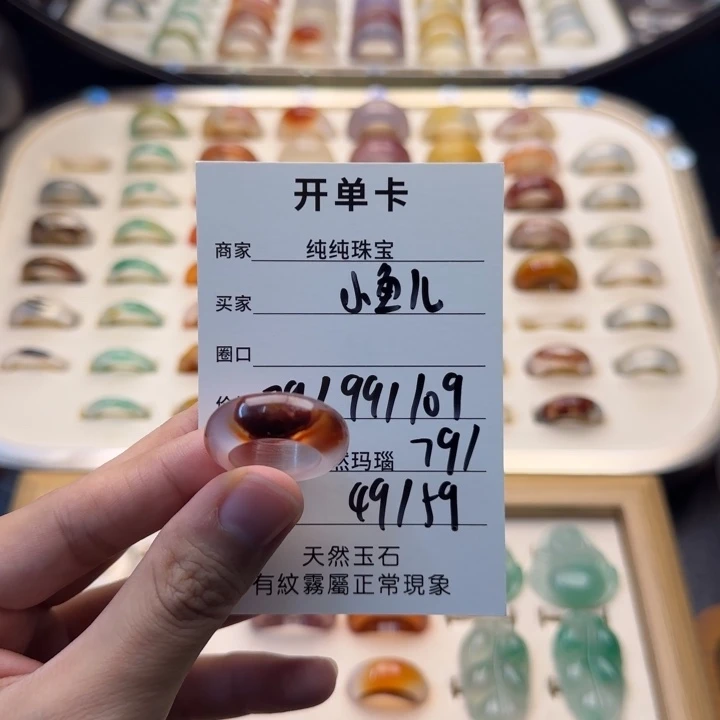 开单卡
商家 纯纯珠宝
买家 小鱼儿
圈口
99/109
然玛瑙 79/
49/59
天然玉石
有紋霧屬正常現象